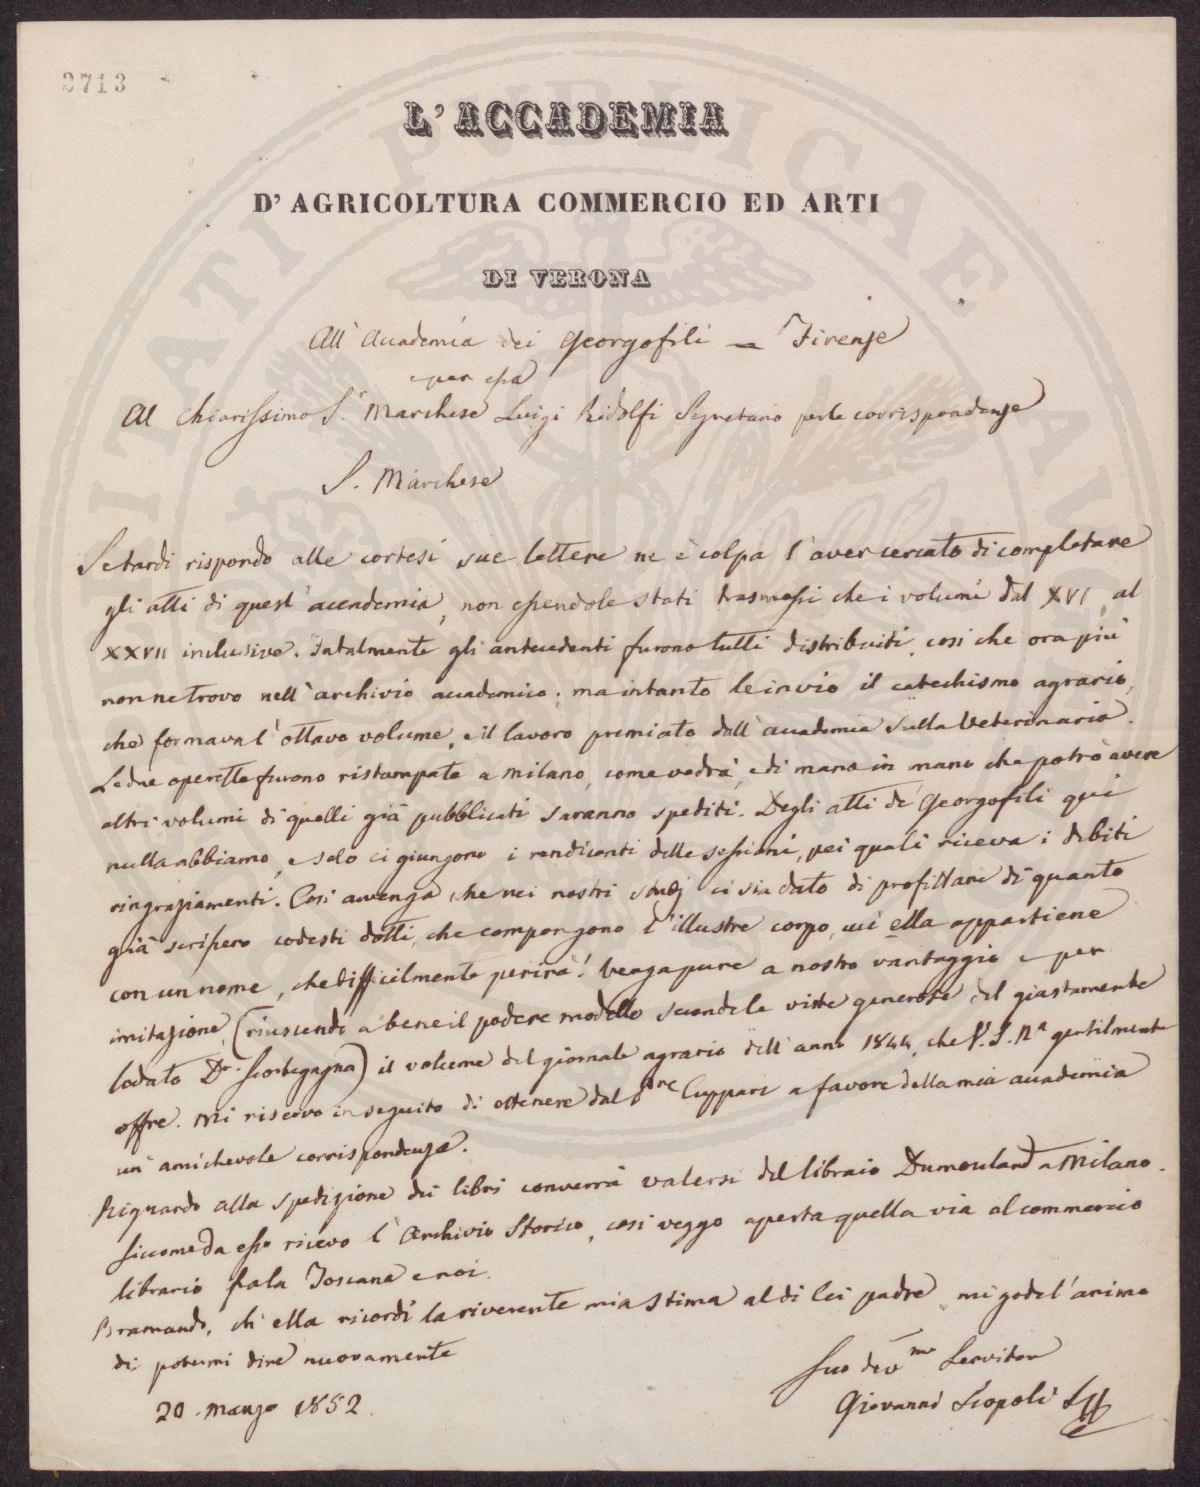 2713
L'ACCADEMIA
D'AGRICOLTURA COMMERCIO ED ARTI
DI VERONA
All'Accademia dei Georgofili = Firenze
per essa
Al chiarissimo S.r Marchese Luigi Ridolfi Segretario per le corrispondenze
S. Marchese
Se tardi rispondo alle cortesi sue lettere ne è colpa l'aver cercato di completare
gli atti di quest'accademia, non essendole stati trasmessi che i volumi dal XVI al
XXVII inclusive. Fatalmente gli antecedenti furono tutti distribuiti, così che ora più
non ne trovo nell'archivio accademico; ma intanto le invio il catechismo agrario,
che formava l'ottavo volume, e il lavoro premiato dall'accademia sulla Veterinaria.
Le due operette furono ristampate a Milano, come vedrà, e di mano in mano che potrò avere
altri volumi di quelli già pubblicati saranno spediti. Degli atti de' Georgofili qui
nulla abbiamo, e solo ci giungono i rendiconti delle sessioni, pei quali riceva i debiti
ringraziamenti. Così avvenga che nei nostri studj ci sia dato di profittare di quanto
già scrissero codesti dotti, che compongono l'illustre corpo, cui ella appartiene
con un nome, che difficilmente perirà! Venga pure a nostro vantaggio e per
imitazione, (riuscendo a bene il podere modello secondo le viste generose del giustamente
lodato Dr. Scortegagna) il volume del giornale agrario dell'anno 1844, che V. S. Na gentilmente
offre. Mi riservo in seguito di ottenere dal Pre Cuppari a favore della mia accademia
un'amichevole corrispondenza.
Riguardo alla spedizione dei libri converrà valersi del libraio Dumoulard a Milano.
Siccome da esso ricevo l'Archivio Storico, così veggo aperta quella via al commercio
librario fra la Toscana e noi.
Bramando, ch'ella ricordi la riverente mia stima al di lei padre mi gode l'animo
di potermi dire nuovamente
Suo dev.mo Servitor
20 Marzo 1852.
Giovanni Scopoli